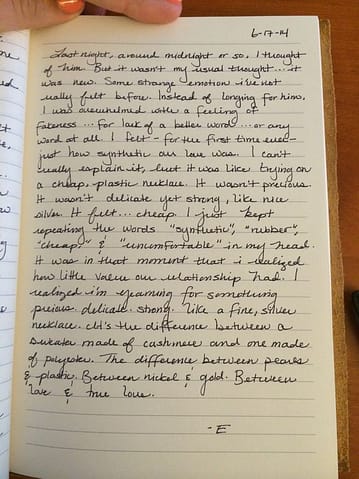 6-17-14
Last night, around midnight or so, I thought
of him. But it wasn't my usual thought... it
was new. Some strange emotion i've not
really felt before. Instead of longing for him,
I was overwhelmed with a feeling of
fakeness... for lack of a better word... or any
word at all. I felt - for the first time ever -
just how synthetic our love was. I can't
really explain it, but it was like trying on
a cheap, plastic necklace. It wasn't precious.
It wasn't delicate yet strong, like nice
silver. It felt... cheap. I just kept
repeating the words "synthetic", "rubber",
"cheap" & "uncomfortable" in my head.
It was in that moment that i realized
how little value our relationship had. I
realized i'm yearning for something
precious. delicate. strong. Like a fine, silver
necklace. It's the difference between a
sweater made of cashmere and one made
of polyester. The difference between pearls
& plastic. Between nickel & gold. Between
love & true love.
-E